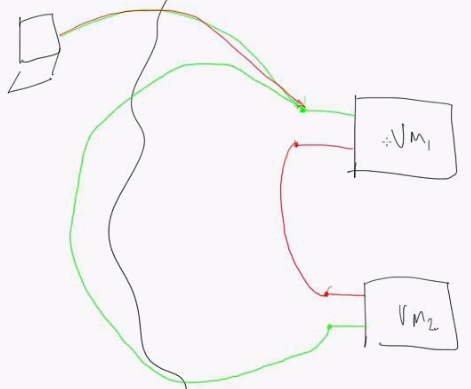 VM₁
VM₂